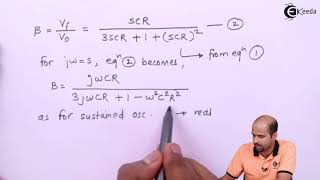 Ekeeda
β = Vf/Vo = SCR / (3SCR + 1 + (SCR)²) — ②
for jω = s, eqⁿ ② becomes, → from eqⁿ ①
β = jωCR / (3jωCR + 1 − ω²C²R²)
as for sustained osc. → real